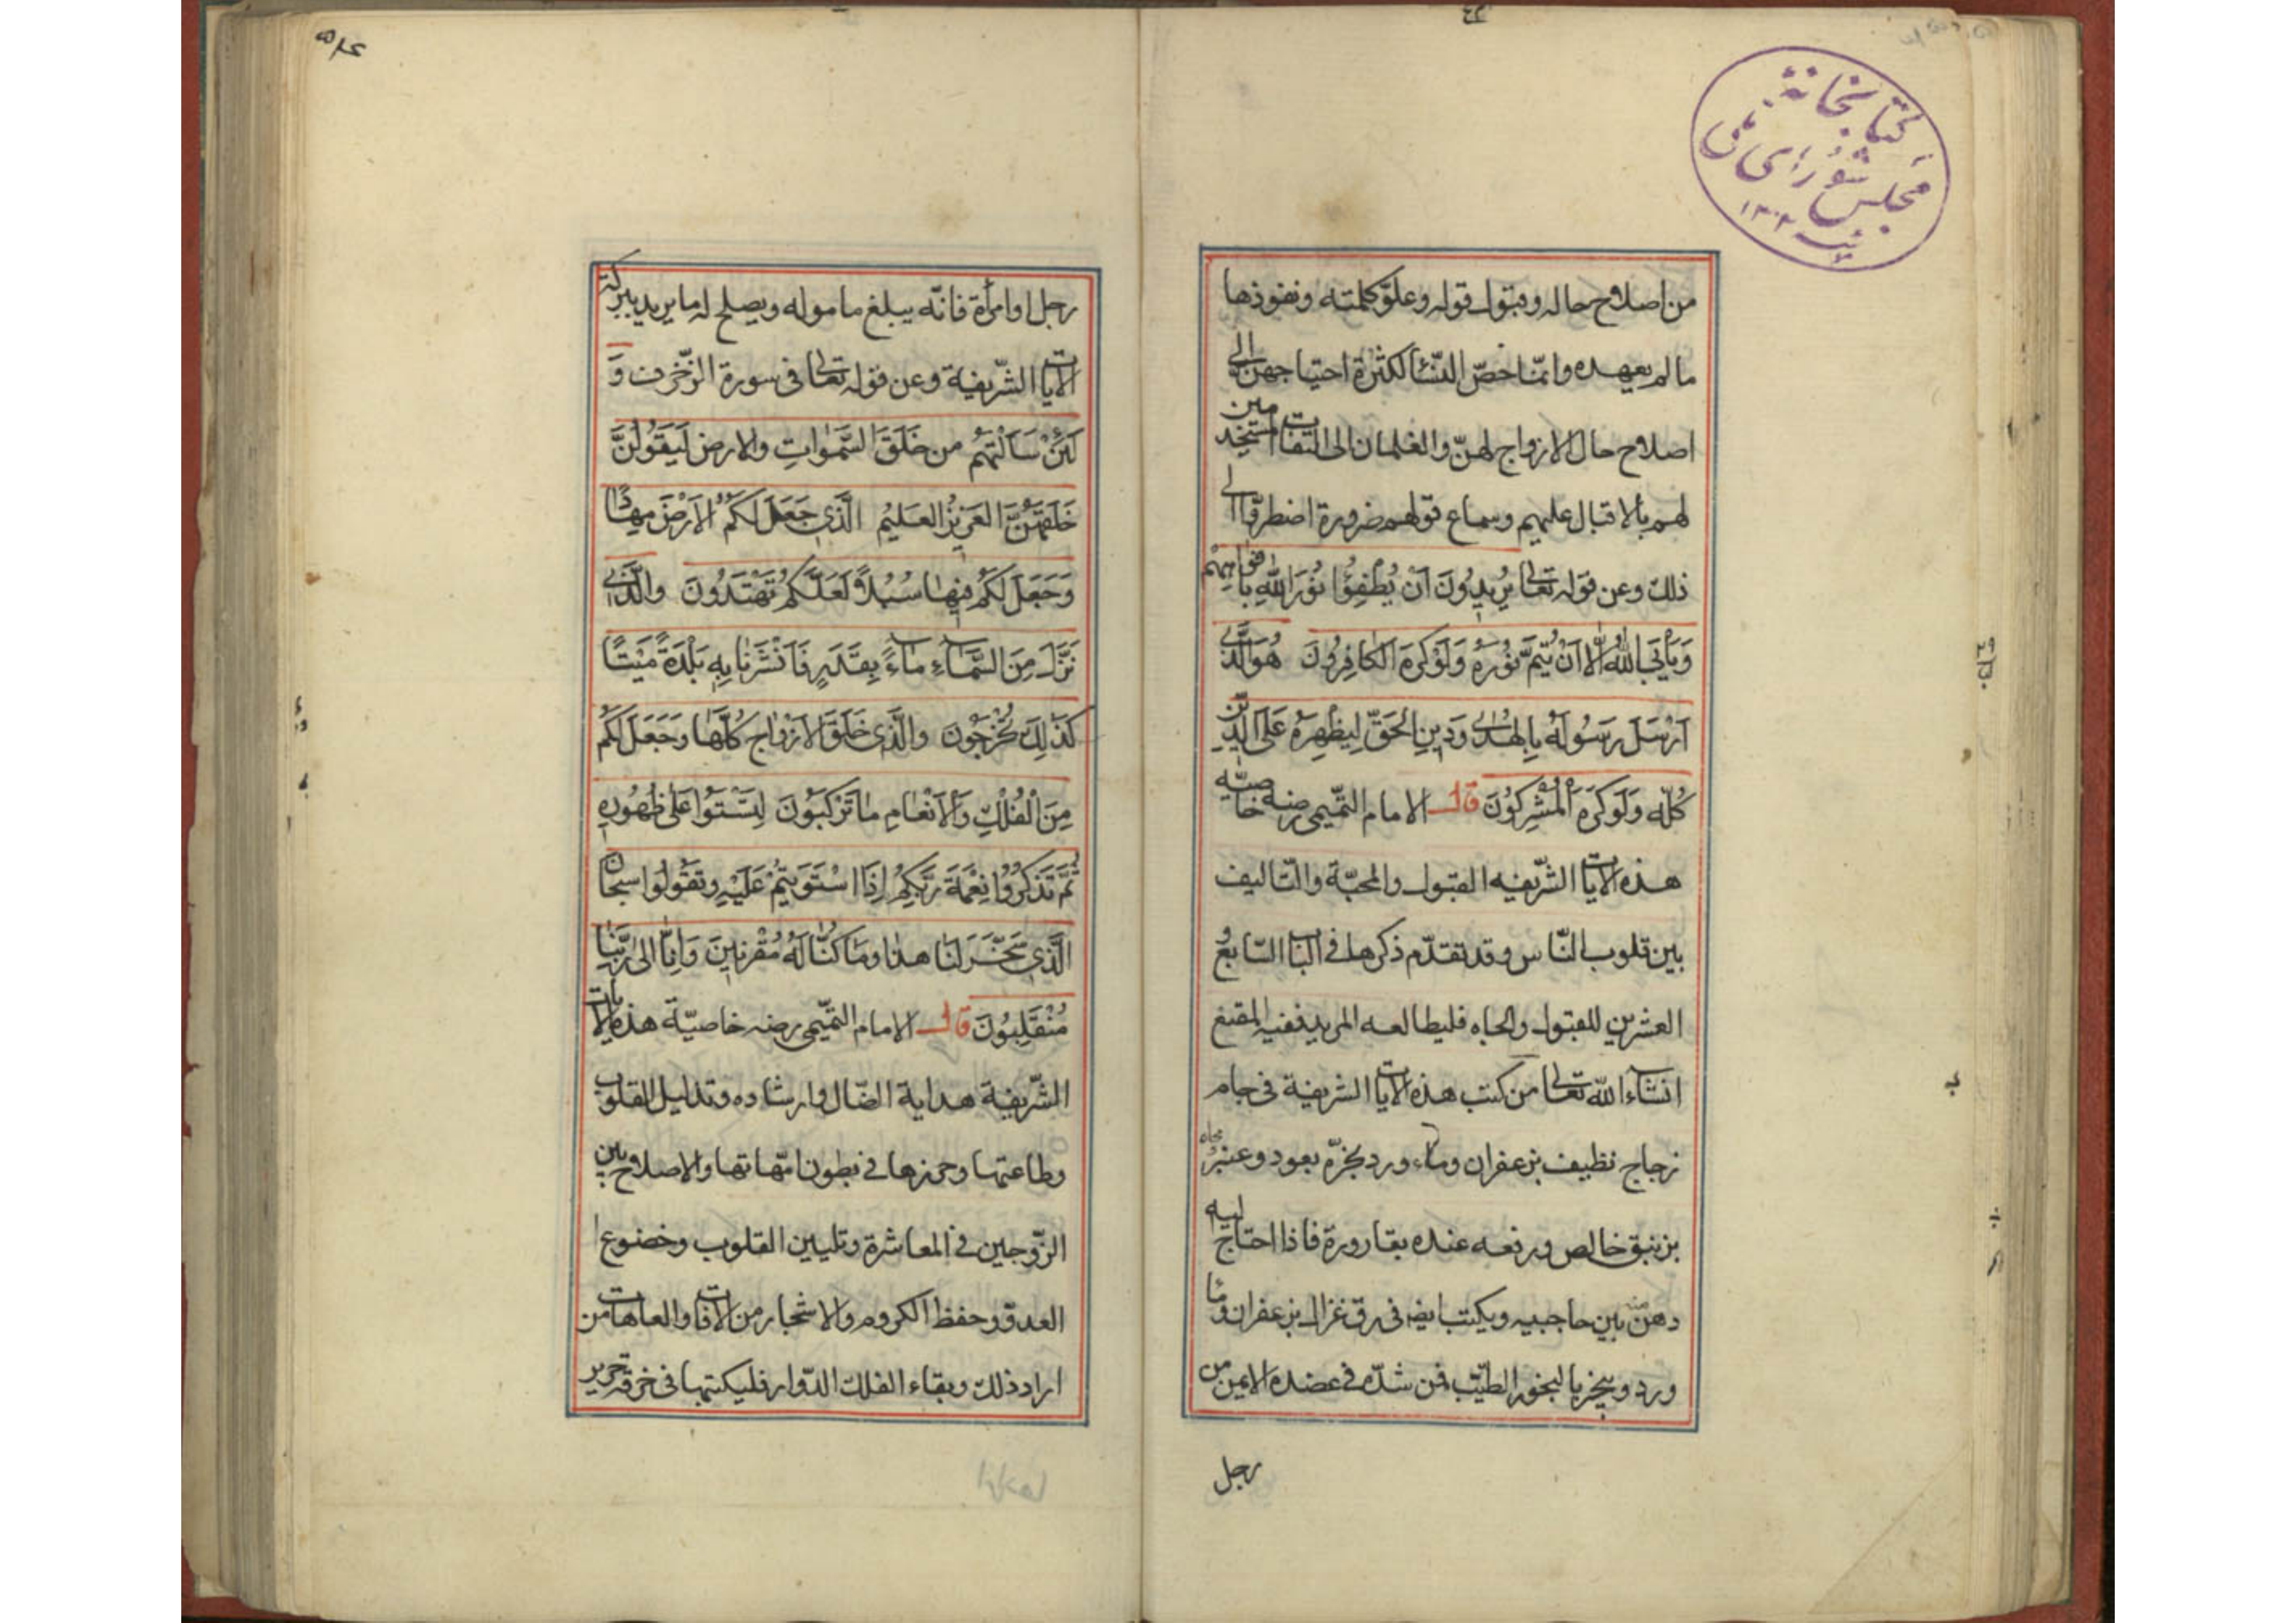 كتابخانهٔ
مجلس شورای ملی
١٣٠٢
من اصلاح حاله وقبول قوله وعلوّ كلمته ونفوذها
ما لم يعهده وانّما خصّ النّسا لكثرة احتياجهن الى
اصلاح حال الازواج لهنّ والغلمان الى التفات مستخدمين
لهم بالاقبال عليهم وسماع قولهم ضرورة اضطرّتنا الى
ذلك وعن قوله تعالى يُرِيدُونَ اَنْ يُطْفِؤُا نُورَ اللّٰهِ بِاَفْوَاهِهِمْ
وَيَاْبَى اللّٰهُ اِلَّا اَنْ يُتِمَّ نُورَهُ وَلَوْ كَرِهَ الْكَافِرُونَ هُوَ الَّذِى
اَرْسَلَ رَسُولَهُ بِالْهُدٰى وَدِينِ الْحَقِّ لِيُظْهِرَهُ عَلَى الدِّينِ
كُلِّهِ وَلَوْ كَرِهَ الْمُشْرِكُونَ قال الامام التّميمى رضه خاصيّة
هذه الايات الشّريفه القبول والمحبّة والتّاليف
بين قلوب النّاس وقد تقدّم ذكرها فى الباب السّابع و
العشرين للقبول والجاه فليطالعه المريد ففيه المقنع
انشاء الله تعالى من كتب هذه الايات الشريفة فى جام
زجاج نظيف بزعفران وماء ورد بخرّه بعود وعنبر
بزنبق خالص ورفعه عنده بقارورة فاذا احتاج اليه
دهن منه بين حاجبيه ويكتب ايضه فى رق غزال بزعفران وما
ورد ويبخر بالبخور الطيّب فمن شدّه فى عضده الايمن من
رجل
رجل او امرأة فانّه يبلغ ماموله ويصلح له ما يريد ببركة
الايات الشّريفة وعن قوله تعالى فى سورة الزّخرف وَ
لَئِنْ سَاَلْتَهُمْ من خَلَقَ السَّمٰوَاتِ والارض لَيَقُولُنَّ
خَلَقَهُنَّ العَزِيزُ العَلِيمُ الَّذِى جَعَلَ لَكُمُ الاَرْضَ مِهَادًا
وَجَعَلَ لَكُمْ فِيهَا سُبُلًا لَعَلَّكُمْ تَهْتَدُونَ والَّذِى
نَزَّلَ مِنَ السَّمَاءِ مَاءً بِقَدَرٍ فَاَنْشَرْنَا بِهِ بَلْدَةً مَيْتًا
كَذٰلِكَ تُخْرَجُونَ والَّذِى خَلَقَ الاَزْوَاجَ كُلَّهَا وَجَعَلَ لَكُمْ
مِنَ الْفُلْكِ وَالْاَنْعَامِ مَا تَرْكَبُونَ لِتَسْتَوُا عَلٰى ظُهُورِهِ
ثُمَّ تَذْكُرُوا نِعْمَةَ رَبِّكُمْ اِذَا اسْتَوَيْتُمْ عَلَيْهِ وتَقُولُوا سبحان
الَّذِى سَخَّرَ لَنَا هٰذَا وَمَا كُنَّا لَهُ مُقْرِنِينَ وَاِنَّا اِلٰى رَبِّنَا
مُنْقَلِبُونَ قال الامام التّميمى رضه خاصيّة هذه الايات
الشّريفة هداية الضّال وارشاده وتذليل القلوب
وطاعتها وحرزها فى بطون امّهاتها والاصلاح بين
الزّوجين فى المعاشرة وتليين القلوب وخضوع
العدوّ وحفظ الكروم والاشجار من الافات والعاهات من
اراد ذلك وبقاء الفلك الدّوار فليكتبها فى خرقة حرير